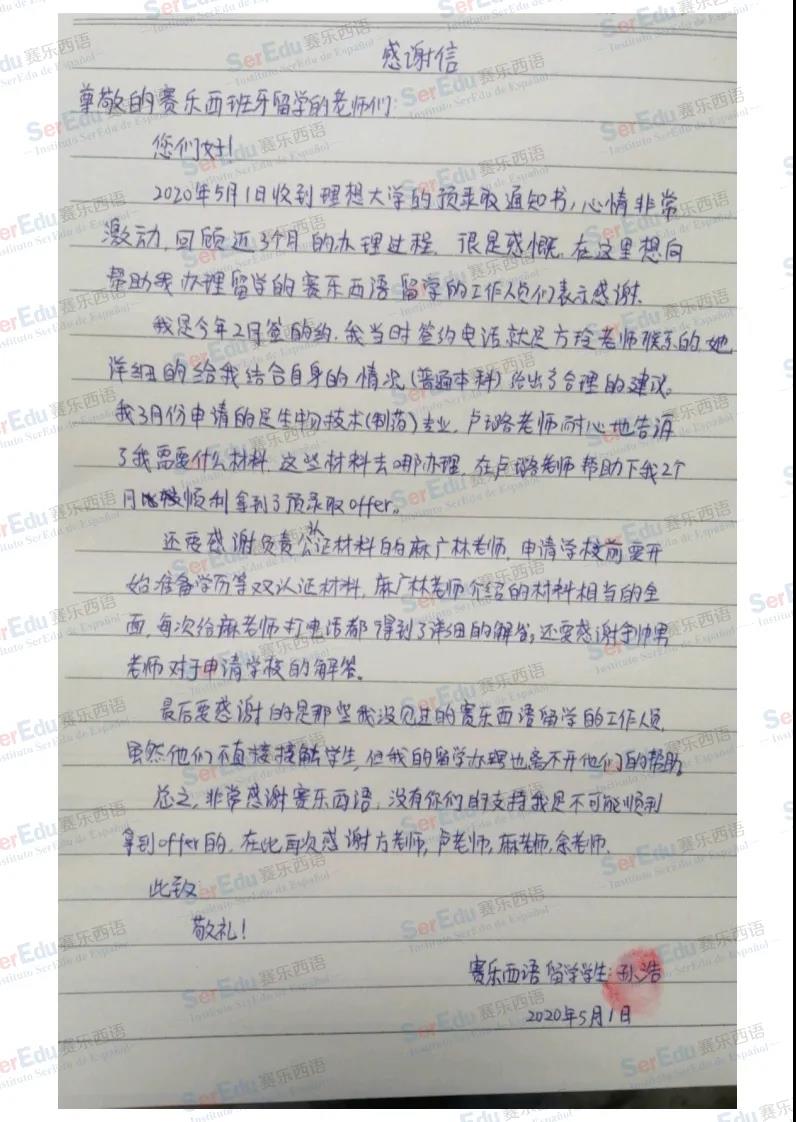 感谢信
尊敬的赛乐西班牙留学的老师们:
您们好!
2020年5月1日收到理想大学的预录取通知书,心情非常
激动,回顾近3个月的办理过程,很是感慨,在这里想向
帮助我办理留学的赛乐西语留学的工作人员们表示感谢.
我是今年2月签的约,我当时签约电话就是方玲老师联系的,她
详细的给我结合自身的情况(普通本科)给出了合理的建议。
我3月份申请的是生物技术(制药)专业,卢璐老师耐心地告诉
了我需要什么材料,这些材料去哪办理,在卢璐老师帮助下我2个
月顺利拿到了预录取offer。
还要感谢负责公证材料的麻广林老师,申请学校前要开
始准备学历等双认证材料,麻广林老师介绍的材料相当的全
面,每次给麻老师打电话都得到了详细的解答,还要感谢余帅男
老师对于申请学校的解答.
最后要感谢的是那些我没见过的赛乐西语留学的工作人员,
虽然他们不直接接触学生,但我的留学办理也离不开他们的帮助,
总之,非常感谢赛乐西语,没有你们的支持我是不可能顺利
拿到offer的,在此再次感谢方老师,卢老师,麻老师,余老师.
此致
敬礼!
赛乐西语留学学生:孙浩
2020年5月1日
SerEdu 赛乐西语
Instituto SerEdu de Español